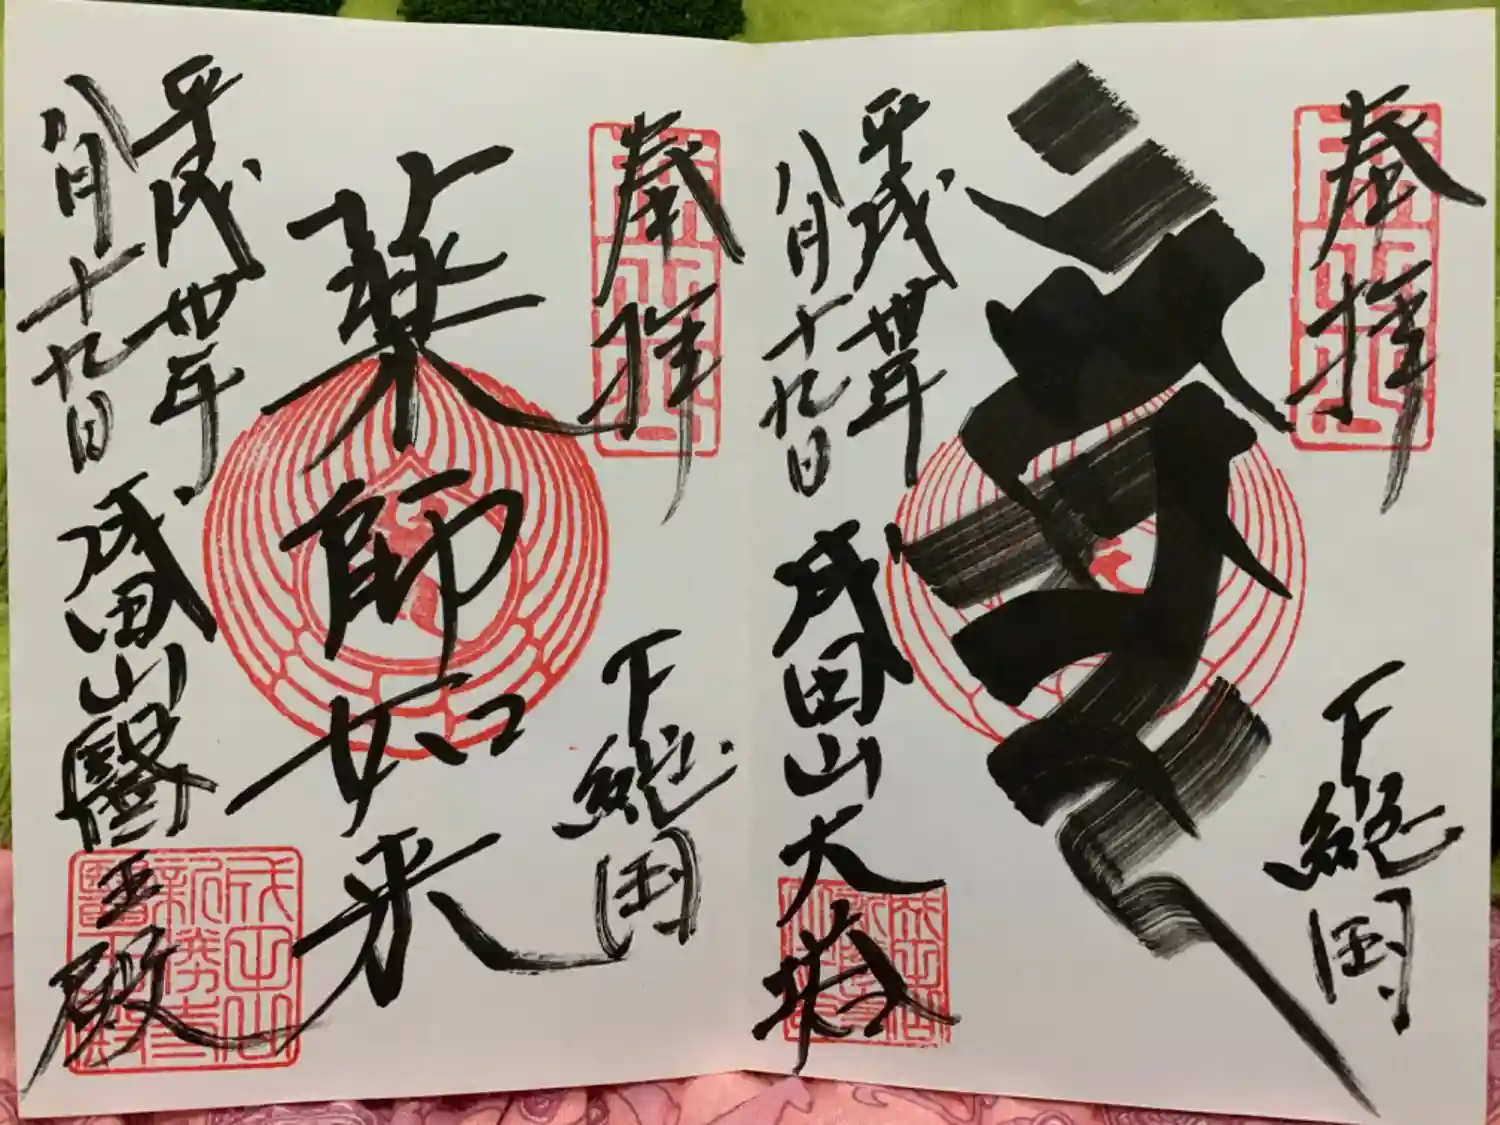 奉拝
下総国
平成丗年
八月十九日
成田山大塔
奉拝
下総国
薬師如来
平成丗年
八月十九日
成田山醫王殿
成田山
新勝寺
醫王殿